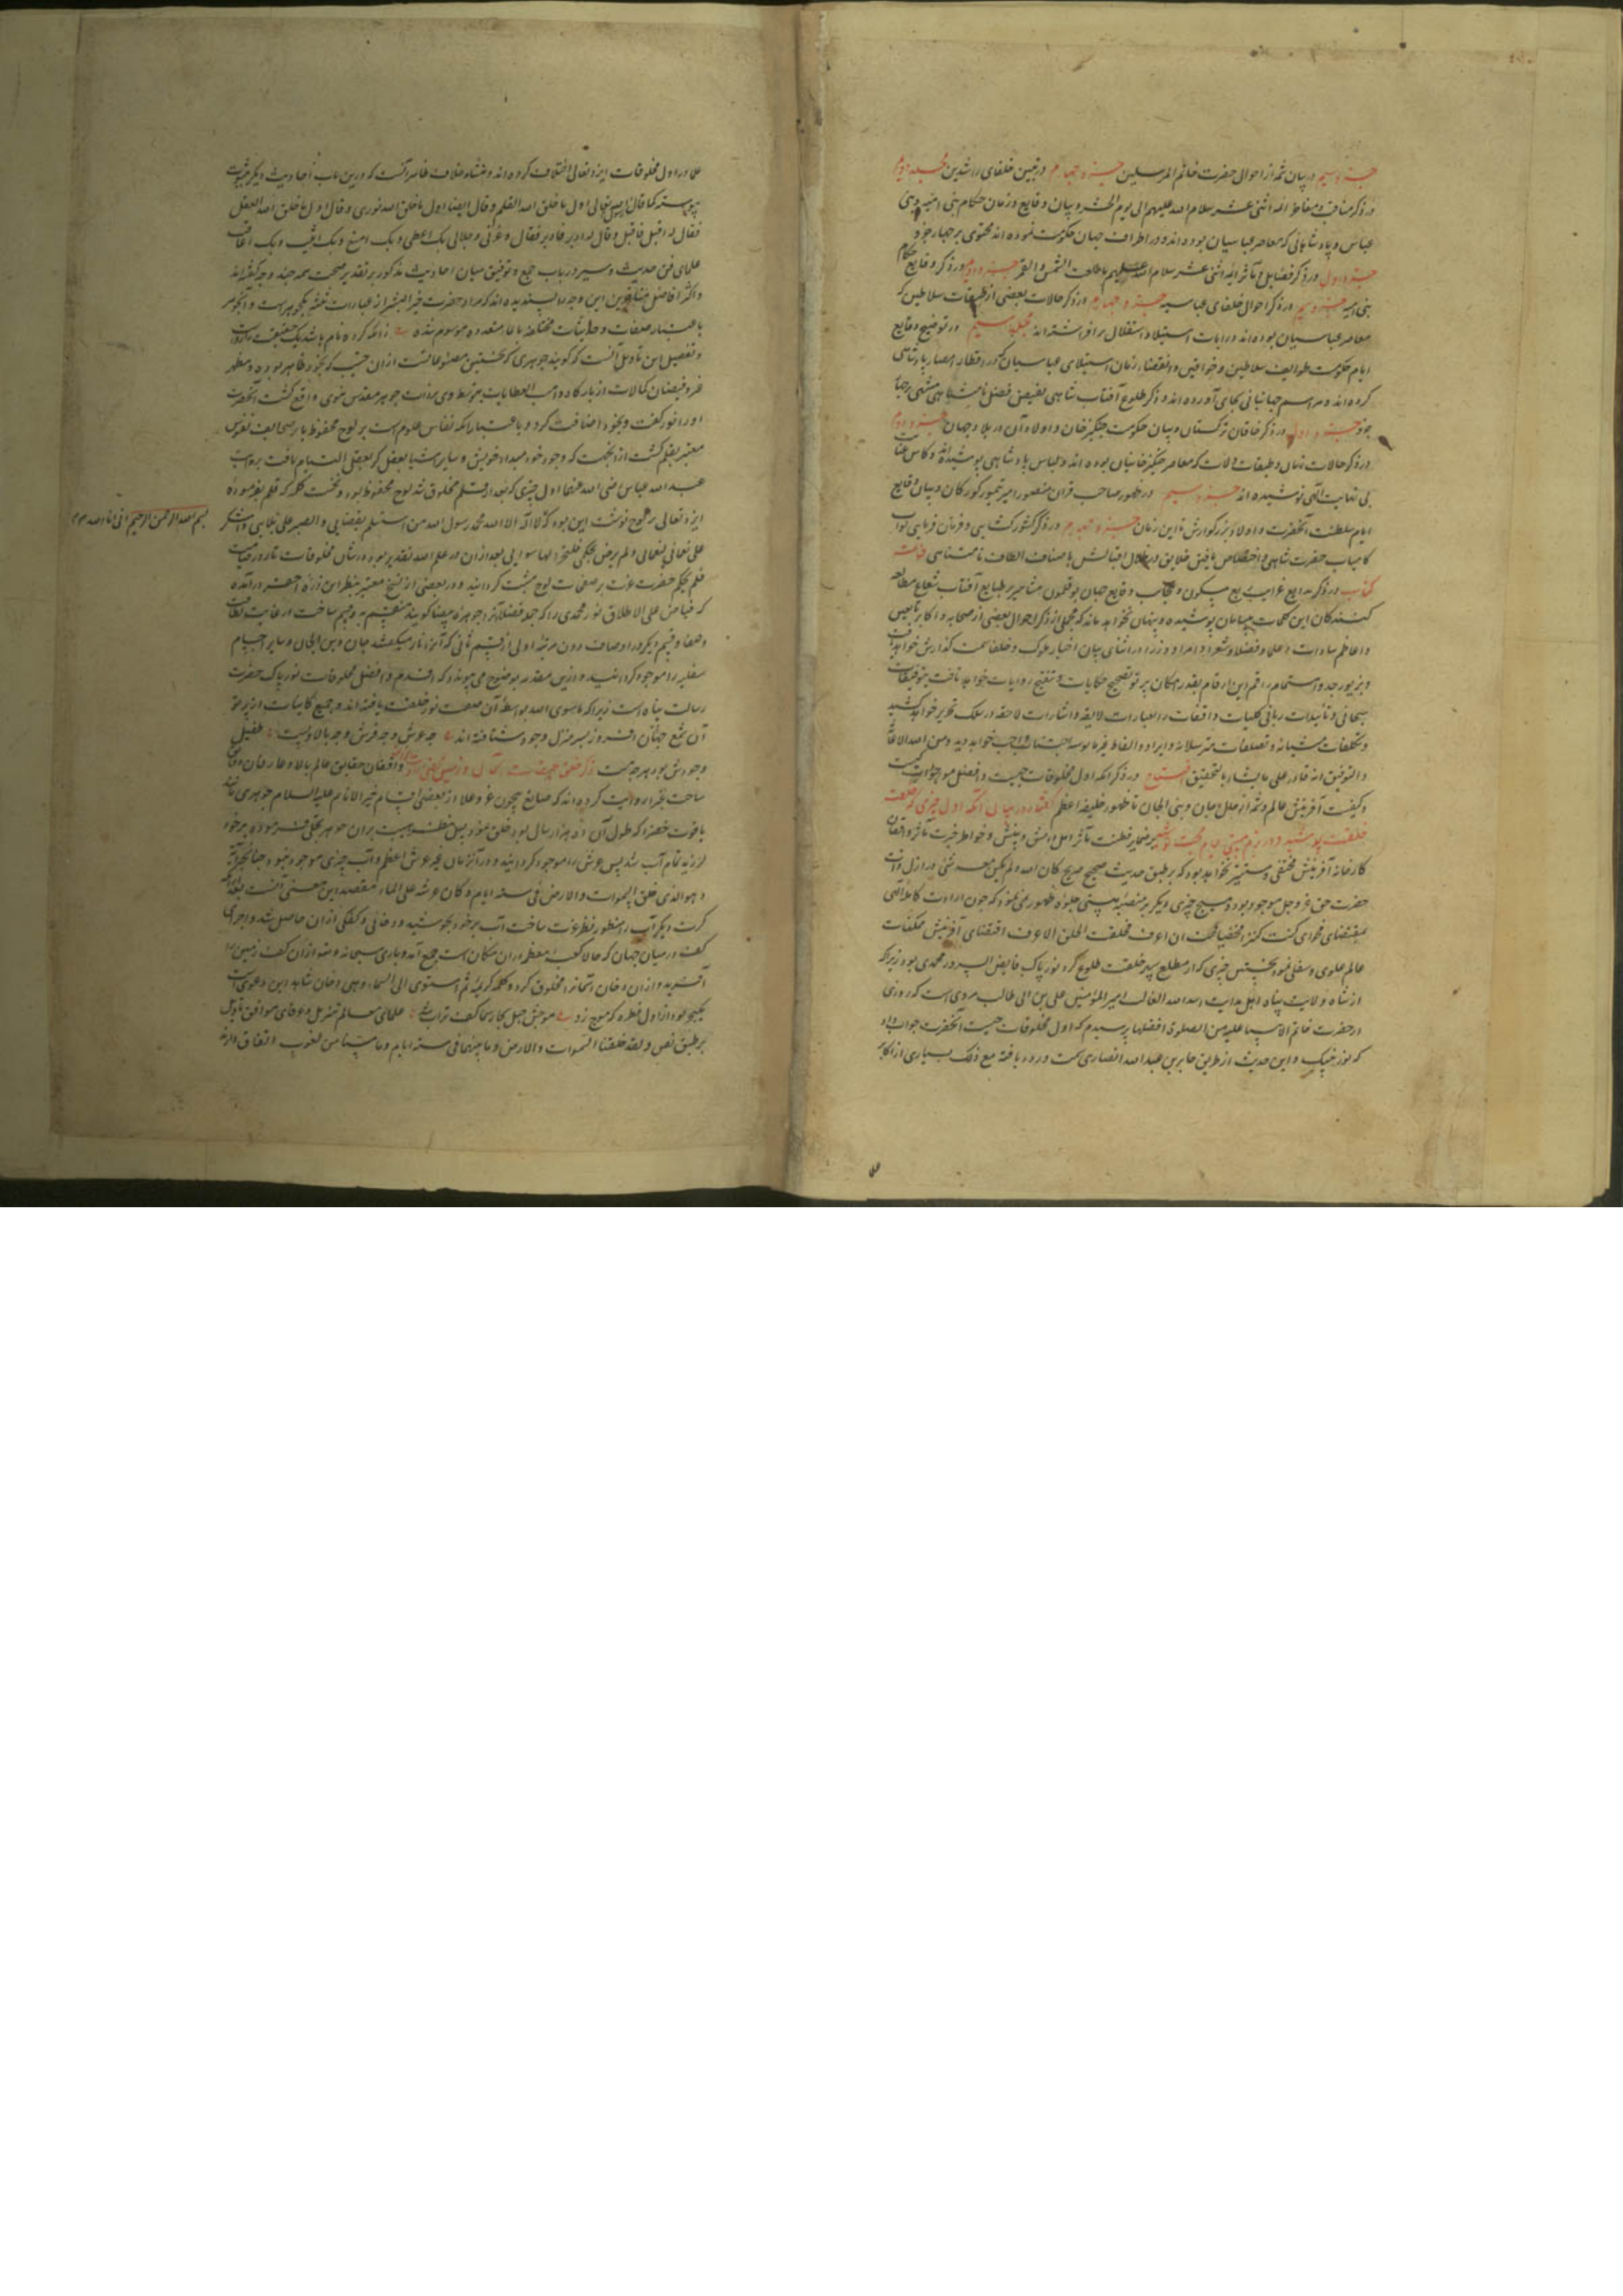 جزو سیم در بیان شمه از احوال حضرت خاتم المرسلین جزو چهارم در تبیین خلفای راشدین مجلد دوم
در ذکر مناقب و مفاخر ائمه اثنی عشر سلام الله علیهم الی یوم الحشر و بیان وقایع و زمان حکام بنی امیه و بنی
عباس و پادشاهانی که معاصر عباسیان بوده‌اند و در اطراف جهان حکومت نموده‌اند محتوی بر چهار جزو
جزو اول در ذکر فضایل و مآثر ائمه اثنی عشر سلام الله علیهم ما طلعت الشمس و القمر جزو دوم در ذکر وقایع حکام
بنی امیه جزو سیم در ذکر احوال خلفای عباسیه جزو چهارم در ذکر حالات بعضی از طبقات سلاطین که
معاصر عباسیان بوده‌اند و رایات استیلا و استقلال برافراشته‌اند مجلد سیم در توضیح وقایع
ایام حکومت طوایف سلاطین و خواقین که بعد انقضاء زمان استیلای عباسیان در اقطار امصار پادشاهی
کرده‌اند و مراسم جهانبانی بجای آورده‌اند و ذکر طلوع آفتاب شاهی بفیض فضل نامتناهی
جزو اول در ذکر خاقان ترکستان و بیان حکومت چنگیز خان و اولاد آن در بلاد جهان جزو دوم
در ذکر حالات زمان و طبقات ولات که معاصر چنگیزخانیان بوده‌اند و لباس پادشاهی پوشیده‌اند و کاس عنایت
بی نهایت الهی نوشیده‌اند جزو سیم در ظهور صاحب قران منصور امیر تیمور کورکان و بیان وقایع
ایام سلطنت آنحضرت و اولاد بزرگوارش تا این زمان جزو چهارم در ذکر کشورکشایی و فرمان فرمایی نواب
کامیاب حضرت شاهی و اختصاص یافتن خلایق در ظلال اقبالش باصناف الطاف نامتناهی خاتمه
کتاب در ذکر بدایع غرایب ربع مسکون و عجایب وقایع جهان بوقلمون مشاهیر بر طبایع آفتاب شعاع مطالعه
کنندگان این کلمات پوشیده و پنهان نخواهد ماند که مجملی از ذکر احوال بعضی از صحابه و اکابر تابعین
و اعاظم سادات و علما و فضلا و شعرا و امرا و وزرا در اثنای بیان اخبار ملوک و خلفا سمت گذارش خواهد یافت
و بزیور جد و اهتمام راقم این ارقام بقدر امکان بر تصحیح حکایات و تنقیح روایات خواهد تافت بتوفیقات
سبحانی و تأییدات ربانی کلیات واقعات را بعبارات لایقه و اشارات لاحقه در سلک تحریر خواهد کشید
و تکلفات منشیانه و تصلفات مترسلانه و ایراد الفاظ غیر مانوسه اجتناب واجب خواهد دید و من الله الاعانة
و التوفیق انه قادر علی ما یشاء بالتحقیق افتتاح در ذکر آنکه اول مخلوقات چیست و افضل موجودات کیست
و کیفیت آفرینش عالم و شمه از حال جان و بنی الجان تا ظهور خلیفه اعظم گفتار در بیان آنکه اول چیزی که خلعت
خلقت پوشید و در بزم هستی جام محبت نوشید بر ضمایر فطنت مآثر اهل دانش و بینش و خواطر خبرت مآثر واقفان
کارخانه آفرینش مختفی و مستتر نخواهد بود که بر طبق حدیث صحیح صریح کان الله و لم یکن معه شیء در ازل ذات
حضرت حق عز و جل موجود بود و هیچ چیزی دیگر بر منصه هستی جلوه ظهور نمی‌نمود که چون ارادت کامله الهی
بمقتضای فحوای کنت کنزا مخفیا فاحببت ان اعرف فخلقت الخلق لاعرف اقتضای آفرینش مکنات
عالم علوی و سفلی نمود نخستین چیزی که از مطلع سپهر خلقت طلوع کرد نور پاک فایض السرور محمدی بود زیرا که
از شاه ولایت پناه اهل هدایت اسد الله الغالب امیر المؤمنین علی بن ابی طالب مرویست که روزی
از حضرت خاتم الانبیا علیه من الصلوة افضلها پرسیدم که اول مخلوقات چیست آنحضرت جواب داد
که نور نبیک و این حدیث از طریق جابر بن عبد الله انصاری سمت ورود یافته مع ذلک بسیاری از اکابر
علما در اول مخلوقات ایزد تعالی اختلاف کرده‌اند و منشاء خلاف ظاهرا آنست که درین باب احادیث دیگر بثبوت
پیوسته کما قال اول ما خلق الله القلم و قال ایضا اول ما خلق الله نوری و قال اول ما خلق الله العقل
فقال له اقبل فاقبل و قال له ادبر فادبر فقال و عزتی و جلالی بک اعطی و بک امنع و بک اثیب و بک اعاقب
علمای فن حدیث و سیر در باب جمع و توفیق میان احادیث مذکور بر تقدیر صحت همه چند وجه گفته‌اند
و اکثر افاضل متاخرین این وجه را پسندیده‌اند که مراد حضرت خیر البشر از عبارات ثلثه یک جوهرست و آن جوهر
باعتبار صفات و حیثیات مختلفه باسما متعدده موسوم شده
و تفصیل این تاویل آنست که گویند جوهری که نخستین مصنوعاتست از آن حیثیت که بخود ظاهر بوده و مظهر
غیر و فیضان کمالات از بارگاه واهب العطایات بتوسط وی بر ذات جوهر مقدس نبوی واقع گشت آنحضرت
او را نور گفت و بخود اضافت کرد و باعتبار آنکه نقاش علوم است بر لوح محفوظ یا بر صحایف نفوس
معتبر بقلم گشت از آنجهت که وجود خود مبداء خویش و سایر اشیا تعقل کرد بعقل اتسام یافت بروایت
عبد الله عباس رضی الله عنهما اول چیزی که بعد از قلم مخلوق شد لوح محفوظ بود و نخست کلمه که قلم بفرموده
ایزد تعالی بر لوح نوشت این بود که لا اله الا الله محمد رسول الله من استسلم بقضایی و الصبر علی بلایی و اشکر
علی نعمائی و لم یرض بحکمی فلیتخذ الها سوایی بعد از آن هر چه علم الله بتقدیر بود در شان مخلوقات تا روز قیامت
قلم بحکم حضرت عزت بر صفحات لوح مثبت گردانید و در بعضی از نسخ معتبر بنظر این ذره احقر درآمده
که فیاض علی الاطلاق نور محمدی را که جمعی فضلا آنرا جوهره بیضا گویند منقسم به دو قسم ساخت
و صفا و قسم دیگر در اوصاف دون مرتبه اولی از قسم ثانی که آنرا نار میگفتند جان و بنی الجان و سایر اجسام
سفلیه را موجود گردانید و ازین مقدمه بوضوح می‌پیوندد که اقدم و افضل مخلوقات نور پاک حضرت
رسالت پناه است زیرا که ماسوی الله بواسطه آن خلعت نور خلقت یافته‌اند و جمیع کاینات از پرتو
آن شمع جهان افروز بسر منزل وجود شتافته‌اند چه عرش و چه فرش و چه بالا و پست طفیل
وجودش بود هر چه هست واقفان حقایق عالم بالا و عارفان
ساحت غبرا روایت کرده‌اند که صانع بیچون عز و علا از بعضی اقسام خیر الانام علیه السلام جوهری
یاقوت خضرا که طول آن ده هزار سال بود خلق نمود پس بنظر هیبت بران جوهر تجلی فرمود بر خود
لرزید تمام آب شد پس عرش را موجود گردانید و در آنزمان غیر عرش اعظم و آب چیزی موجود نبود چنانچه آیه
و هو الذی خلق السموات و الارض فی ستة ایام و کان عرشه علی الماء مقصد این معنی آنست
کرت دیگر آب را منظور نظر عزت ساخت آب بر خود بجوشید و دخانی و کفکی از آن حاصل شد
کف در میان جهان که حالا کعبه معظمه در آن مکان است جمع آمد و باری سبحانه و تعالی از آن کف زمین را
آفرید و از آن دخان آسمانرا مخلوق کرد و کلمه کریمه ثم استوی الی السماء و هی دخان شاهد این دعوی است
علمای معالم تنزیل و عرفای مواقف تاویل
بر طبق نص و لقد خلقنا السموات و الارض و ما بینهما فی ستة ایام و ما مسنا من لغوب اتفاق دارند
بسم الله الرحمن الرحیم انی انا الله